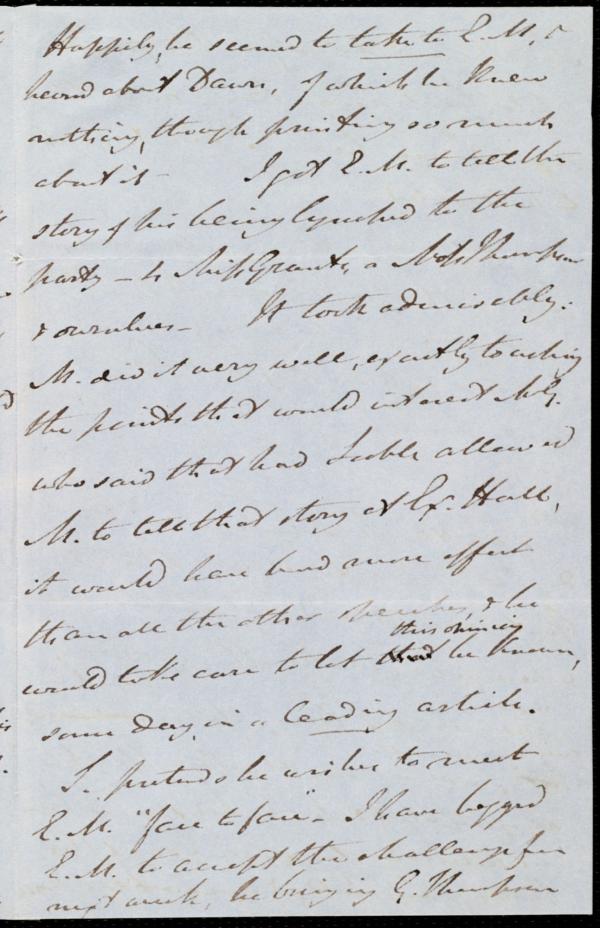 Happily, he seemed to take to E. M. &
heard about Dawn, of which he knew
nothing, though printing so much
about it - I got E. M. to tell the
story of his being lynched to the
party - to Miss Grant, a Mr Thompson
& ourselves - It took admirably:
M. did it very well, exactly touching
the points that would interest Mr G.
who said that had Scoble allowed
M. to tell that story at Ex. Hall,
it would have had more effect
than all the other speeches, & he
this opinion
would take care to let be known,
some day, in a leading article.
S. pretends he wishes to meet
E. M. "face to face" - I have begged
E. M. to accept the challenge for
next week, he bringing G. Thompson